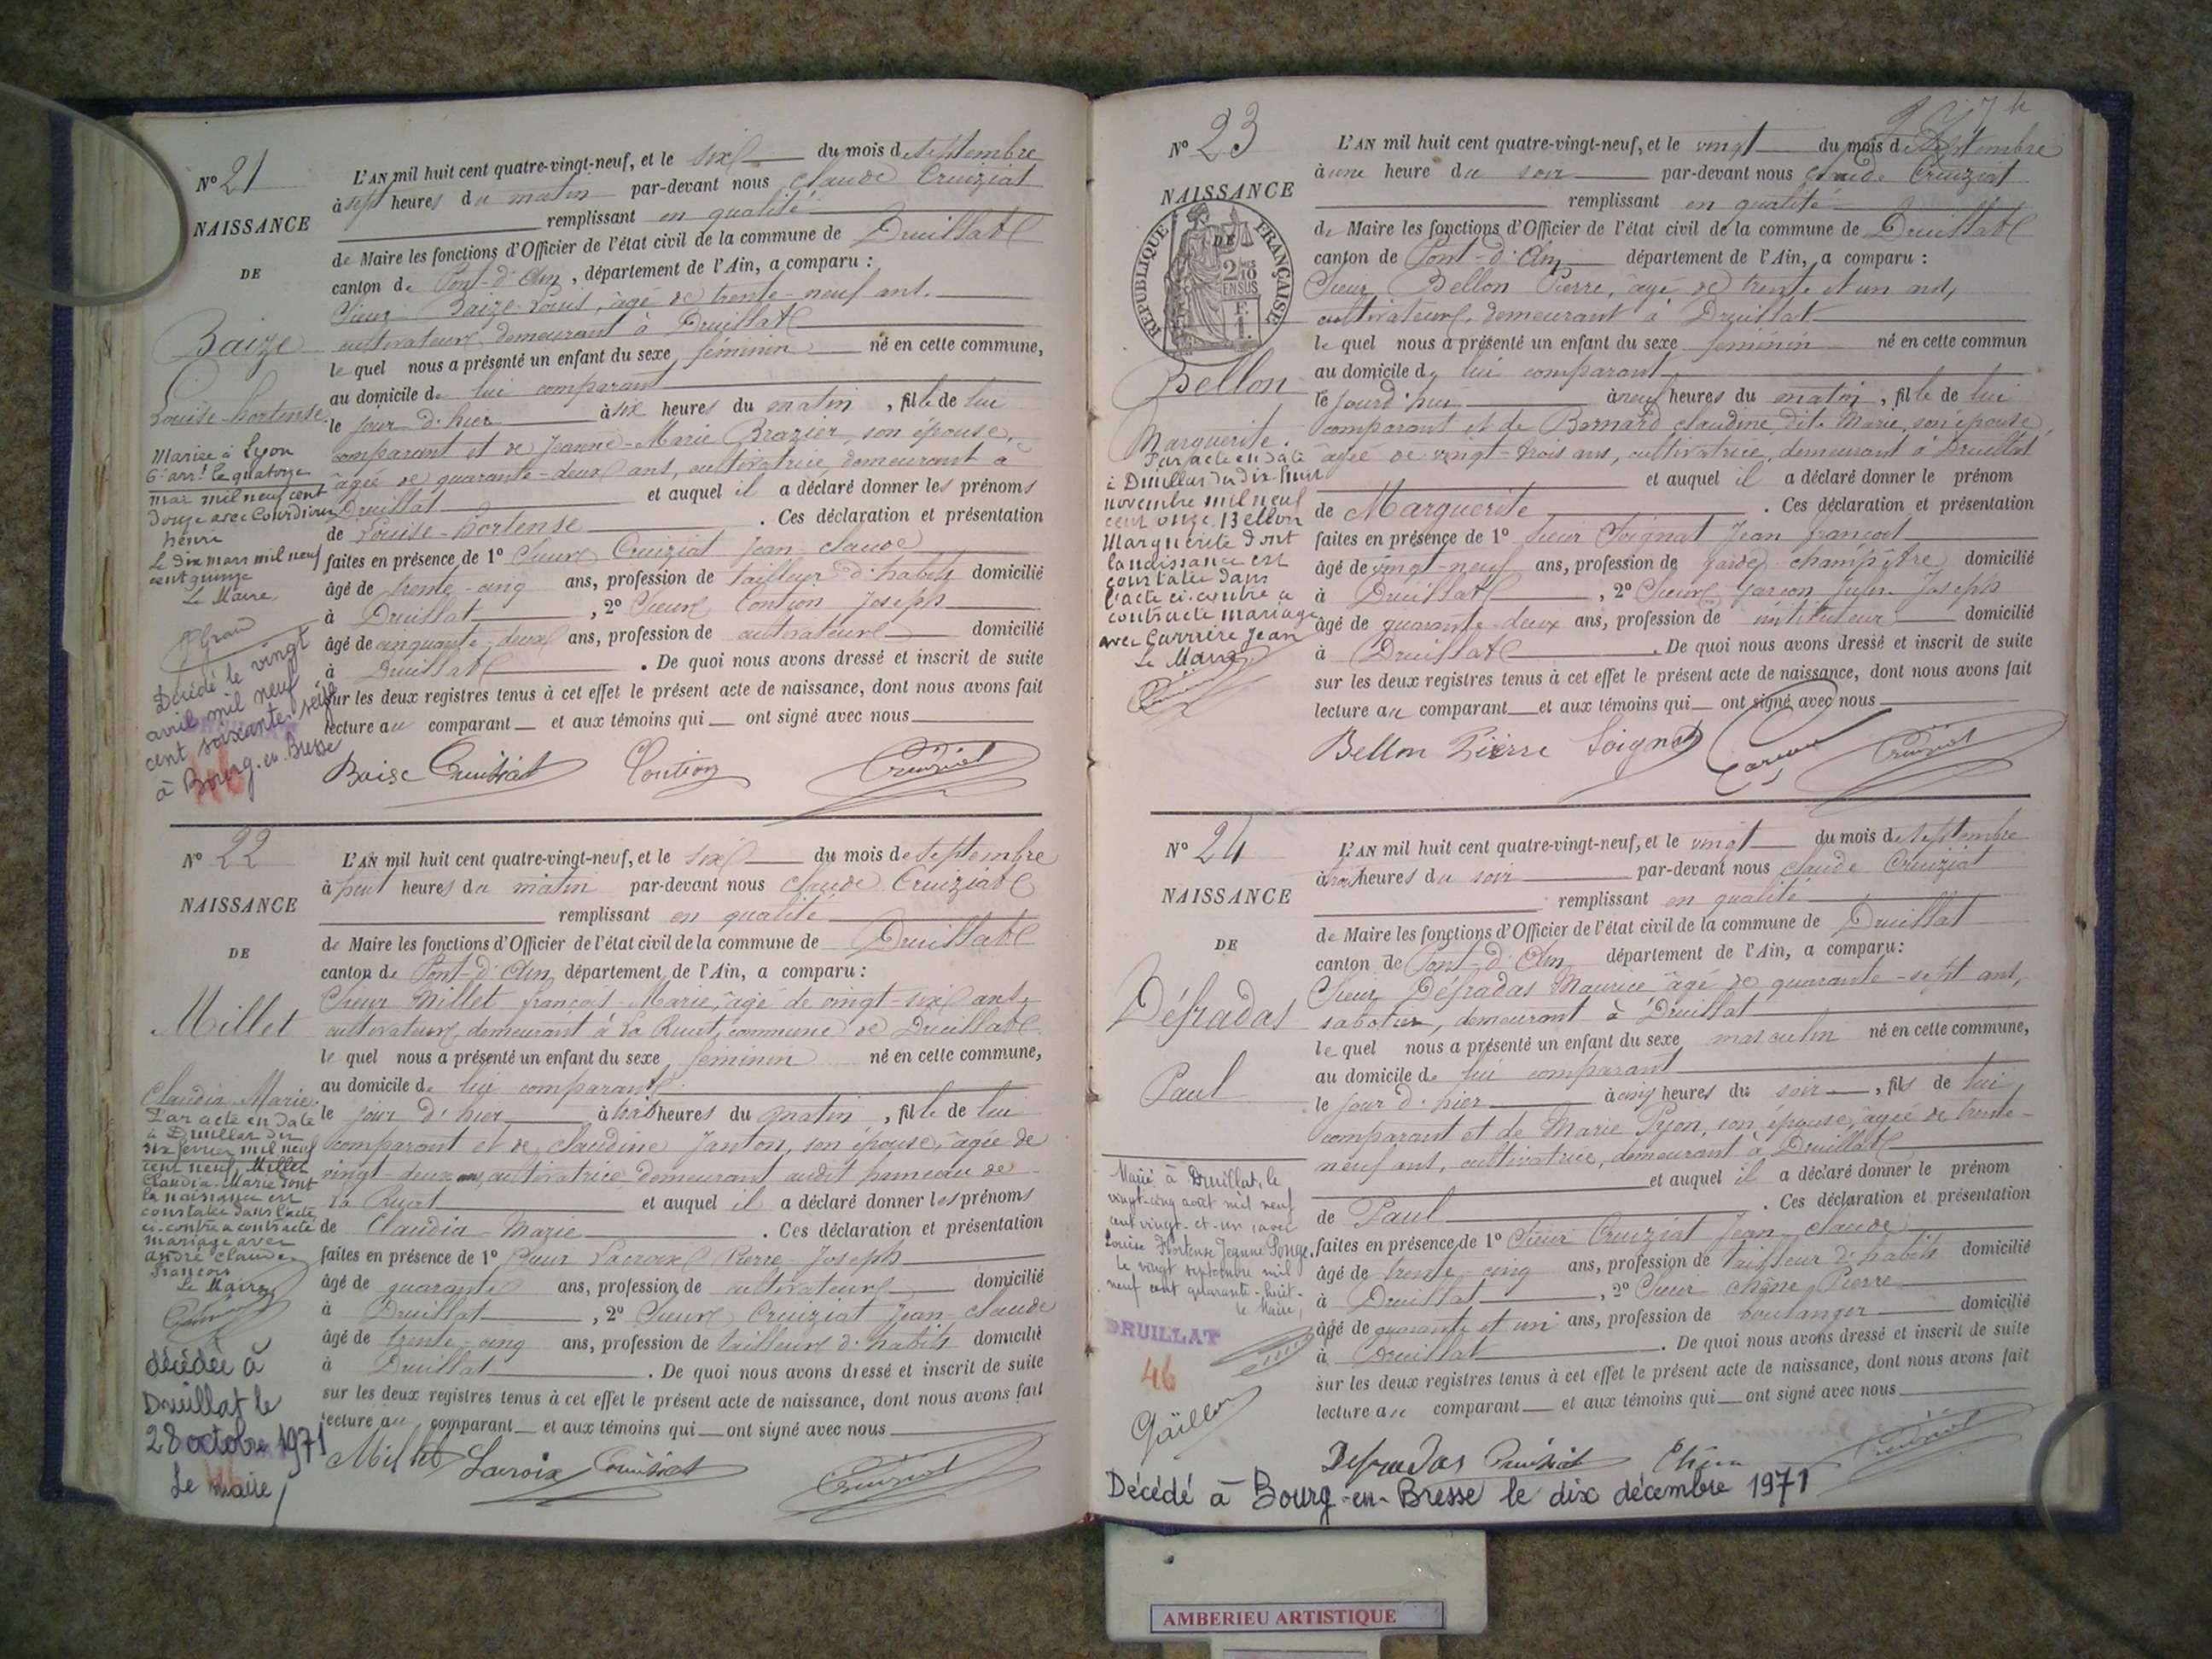 No 21
NAISSANCE
DE
Baize
Louise-hortense
Mariée à Lyon
6e arrt le quatorze
mar mil neuf cent
douze avec Courdioux
henri
Le dix mars mil neuf
cent quinze
Le Maire,
Décédé le vingt
avril mil neuf
cent soixante-seize
à Bourg-en-Bresse
L'AN mil huit cent quatre-vingt-neuf, et le six du mois de septembre
à sept heures du matin par-devant nous Claude Cruiziat
remplissant en qualité
de Maire les fonctions d'Officier de l'état civil de la commune de Druillat
canton de Pont-d'Ain, département de l'Ain, a comparu :
Sieur Baize Louis, âgé de trente-neuf ans.
cultivateur, demeurant à Druillat
lequel nous a présenté un enfant du sexe féminin né en cette commune,
au domicile de lui comparant
le jour d'hier à six heures du matin, fille de lui
comparant et de Jeanne-Marie Brazier, son épouse,
âgée de quarante-deux ans, cultivatrice, demeurant à
Druillat et auquel il a déclaré donner les prénoms
de Louise-hortense. Ces déclaration et présentation
faites en présence de 1º Sieur Cruiziat Jean claude
âgé de trente-cinq ans, profession de tailleur d'habits domicilié
à Druillat, 2º Sieur Contion Joseph
âgé de cinquante-deux ans, profession de cultivateur domicilié
à Druillat. De quoi nous avons dressé et inscrit de suite
sur les deux registres tenus à cet effet le présent acte de naissance, dont nous avons fait
lecture au comparant et aux témoins qui ont signé avec nous
Baise Cruiziat Contion Cruiziat
No 22
NAISSANCE
DE
Millet
Claudia Marie
Par acte en date
à Druillat du
six février mil neuf
cent neuf, Millet
Claudia-Marie dont
la naissance est
constatée dans l'acte
ci-contre a contracté
mariage avec
André Claude
François
Le Maire
décédée à
Druillat le
28 octobre 1971
Le Maire
L'AN mil huit cent quatre-vingt-neuf, et le six du mois de septembre
à huit heures du matin par-devant nous Claude Cruiziat
remplissant en qualité
de Maire les fonctions d'Officier de l'état civil de la commune de Druillat
canton de Pont-d'Ain, département de l'Ain, a comparu :
Sieur Millet françois-Marie, âgé de vingt-six ans,
cultivateur, demeurant à la Ruat, commune de Druillat
lequel nous a présenté un enfant du sexe féminin né en cette commune,
au domicile de lui comparant
le jour d'hier à trois heures du matin, fille de lui
comparant et de Claudine Janton, son épouse, âgée de
vingt-deux ans, cultivatrice demeurant audit hameau de
la Ruat et auquel il a déclaré donner les prénoms
de Claudia-Marie. Ces déclaration et présentation
faites en présence de 1º Sieur Lacroix Pierre-Joseph
âgé de quarante ans, profession de cultivateur domicilié
à Druillat, 2º Sieur Cruiziat Jean-claude
âgé de trente-cinq ans, profession de tailleur d'habits domicilié
à Druillat. De quoi nous avons dressé et inscrit de suite
sur les deux registres tenus à cet effet le présent acte de naissance, dont nous avons fait
lecture au comparant et aux témoins qui ont signé avec nous
Millet Lacroix Cruiziat Cruiziat
No 23
NAISSANCE
DE
REPUBLIQUE FRANÇAISE
Bellon
Marguerite.
Par acte en date
à Druillat du dix-huit
novembre mil neuf
cent onze, Bellon
Marguerite dont
la naissance est
constatée dans
l'acte ci-contre a
contracté mariage
avec Carrière Jean
Le Maire
L'AN mil huit cent quatre-vingt-neuf, et le vingt du mois de septembre
à une heure du soir par-devant nous Claude Cruiziat
remplissant en qualité
de Maire les fonctions d'Officier de l'état civil de la commune de Druillat
canton de Pont-d'Ain département de l'Ain, a comparu :
Sieur Bellon Pierre, âgé de trente et un ans,
cultivateur, demeurant à Druillat
lequel nous a présenté un enfant du sexe féminin né en cette commun
au domicile de lui comparant
le jourd'hui à neuf heures du matin, fille de lui
comparant et de Bernard Claudine dite Marie, son épouse
âgée de vingt-trois ans, cultivatrice, demeurant à Druillat
et auquel il a déclaré donner le prénom
de Marguerite. Ces déclaration et présentation
faites en présence de 1º Sieur Soignat Jean françois
âgé de vingt-neuf ans, profession de garde-champêtre domicilié
à Druillat, 2º Sieur Joseph
âgé de quarante-deux ans, profession de instituteur domicilié
à Druillat. De quoi nous avons dressé et inscrit de suite
sur les deux registres tenus à cet effet le présent acte de naissance, dont nous avons fait
lecture au comparant et aux témoins qui ont signé avec nous
Bellon Pierre Soignat Cruiziat
No 24
NAISSANCE
DE
Défradas
Paul
Marié à Druillat, le
vingt-cinq août mil neuf
cent vingt-et-un avec
Louise Hortense Jeanne Ponge.
Le vingt septembre mil
neuf cent quarante-huit
le Maire,
DRUILLAT
46
L'AN mil huit cent quatre-vingt-neuf, et le vingt du mois de septembre
à trois heures du soir par-devant nous Claude Cruiziat
remplissant en qualité
de Maire les fonctions d'Officier de l'état civil de la commune de Druillat
canton de Pont-d'Ain département de l'Ain, a comparu:
Sieur Défradas Maurice âgé de quarante-sept ans,
sabotier, demeurant à Druillat
lequel nous a présenté un enfant du sexe masculin né en cette commune,
au domicile de lui comparant
le jour d'hier à cinq heures du soir, fils de lui
comparant et de Marie Pyon, son épouse, âgée de trente-
neuf ans, cultivatrice, demeurant à Druillat
et auquel il a déclaré donner le prénom
de Paul. Ces déclaration et présentation
faites en présence de 1º Sieur Cruiziat Jean claude
âgé de trente-cinq ans, profession de tailleur d'habits domicilié
à Druillat, 2º Sieur Chêne Pierre
âgé de quarante et un ans, profession de boulanger domicilié
à Druillat. De quoi nous avons dressé et inscrit de suite
sur les deux registres tenus à cet effet le présent acte de naissance, dont nous avons fait
lecture au comparant et aux témoins qui ont signé avec nous
Defradas Cruiziat Chêne Cruiziat
Décédé à Bourg-en-Bresse le dix décembre 1971
AMBERIEU ARTISTIQUE